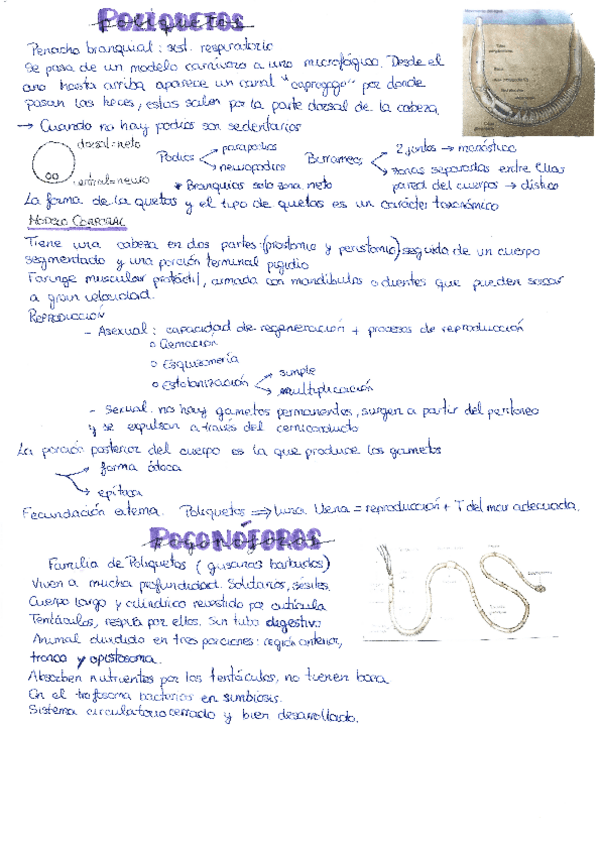 POLIQUETOS
Penacho branquial: sist. respiratorio
Se pasa de un modelo carnívoro a uno microfágico. Desde el
ano hasta arriba aparece un canal "coprogogo" por donde
pasan las heces, estas salen por la parte dorsal de la cabeza.
→ Cuando no hay podios son sedentarios
dorsal: noto
ventral: neuro
Podios
parapodios
neuropodios
Branquias solo zona noto
2 juntos → monóstico
zonas separadas entre ellas
pared del cuerpo → dístico
La forma de la quetas y el tipo de quetas es un carácter taxonómico
MODELO CORPORAL
Tiene una cabeza en dos partes: (prostomio y peristomio) seguida de un cuerpo
segmentado y una porción terminal pigidio
Faringe muscular protáctil, armada con mandíbulas o dientes que pueden sacar
a gran velocidad.
REPRODUCCIÓN
- Asexual: capacidad de regeneración + procesos de reproducción
o Gemación
o Esquizomería
o Estolonización
simple
multiplicación
- Sexual: no hay gametos permanentes, surgen a partir del peritoneo
y se expulsan a través del
La porción posterior del cuerpo es la que produce los gametos
forma átoca
epítoca
Fecundación externa. Poliquetos ⟹ luna llena = reproducción + T del mar adecuada.
POGONÓFOROS
Familia de Poliquetos (gusanos barbudos)
Viven a mucha profundidad. Solitarios, sésiles.
Cuerpo largo y cilíndrico revestido por cutícula
Tentáculos, respira por ellos. Sin tubo digestivo
Animal dividido en tres porciones: región anterior,
tronco y opistosoma.
Absorben nutrientes por los tentáculos, no tienen boca
En el trofosoma bacterias en simbiosis.
Sistema circulatorio cerrado y bien desarrollado.